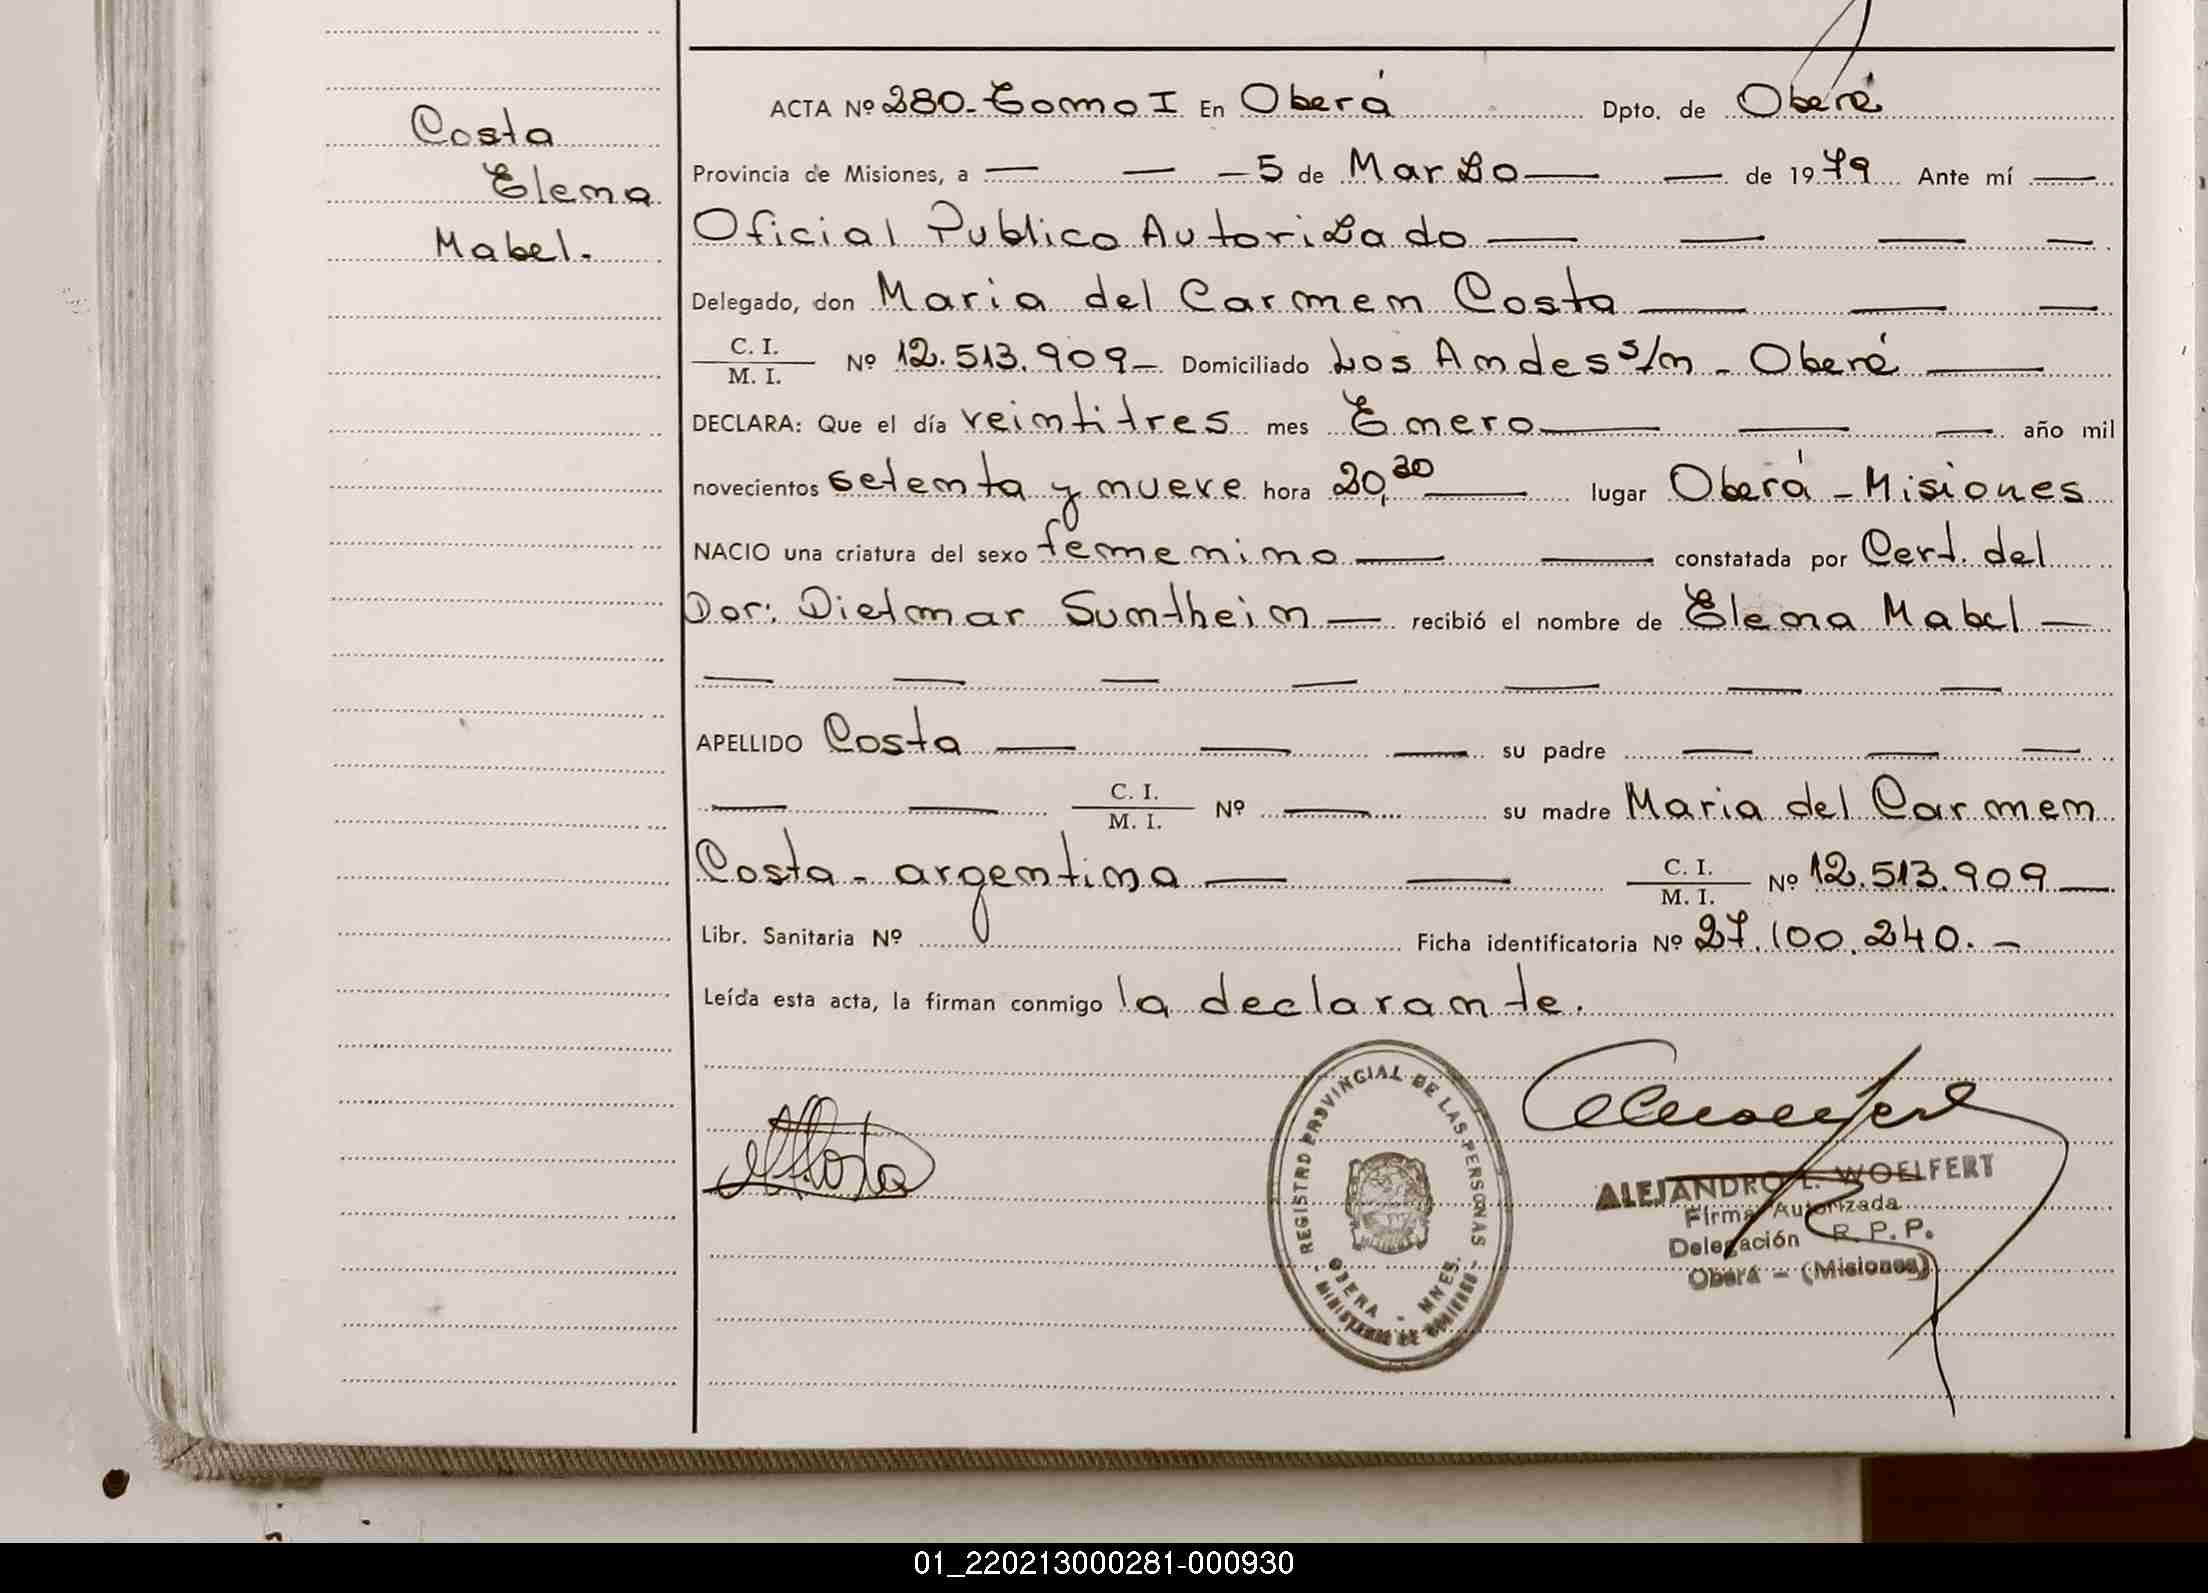 Costa
Elena
Mabel.
ACTA Nº 280. Tomo I En Oberá Dpto. de Oberá
Provincia de Misiones, a — — — 5 de Marzo — — de 1979 Ante mí —
Oficial Publico Autorizado — — — —
Delegado, don Maria del Carmen Costa — — —
C. I.
M. I. Nº 12.513.909 — Domiciliado Los Andes s/n - Oberá —
DECLARA: Que el día veintitres mes Enero — — — año mil
novecientos setenta y nueve hora 20,30 — lugar Oberá - Misiones
NACIO una criatura del sexo femenino — — constatada por Cert. del
Dor: Dietmar Sumtheim — recibió el nombre de Elena Mabel —
— — — — — — —
APELLIDO Costa — — — su padre — — —
— — C. I.
M. I. Nº — su madre Maria del Carmen
Costa - argentina — — C. I.
M. I. Nº 12.513.909 —
Libr. Sanitaria Nº Ficha identificatoria Nº 27.100.240. -
Leída esta acta, la firman conmigo la declarante.
REGISTRO PROVINCIAL DE LAS PERSONAS
OBERA - MNES.
- MINISTERIO DE GOBIERNO -
ALEJANDRO L. WOELFERT
Firma Autorizada
Delegación R. P. P.
Oberá - (Misiones)
01_220213000281-000930